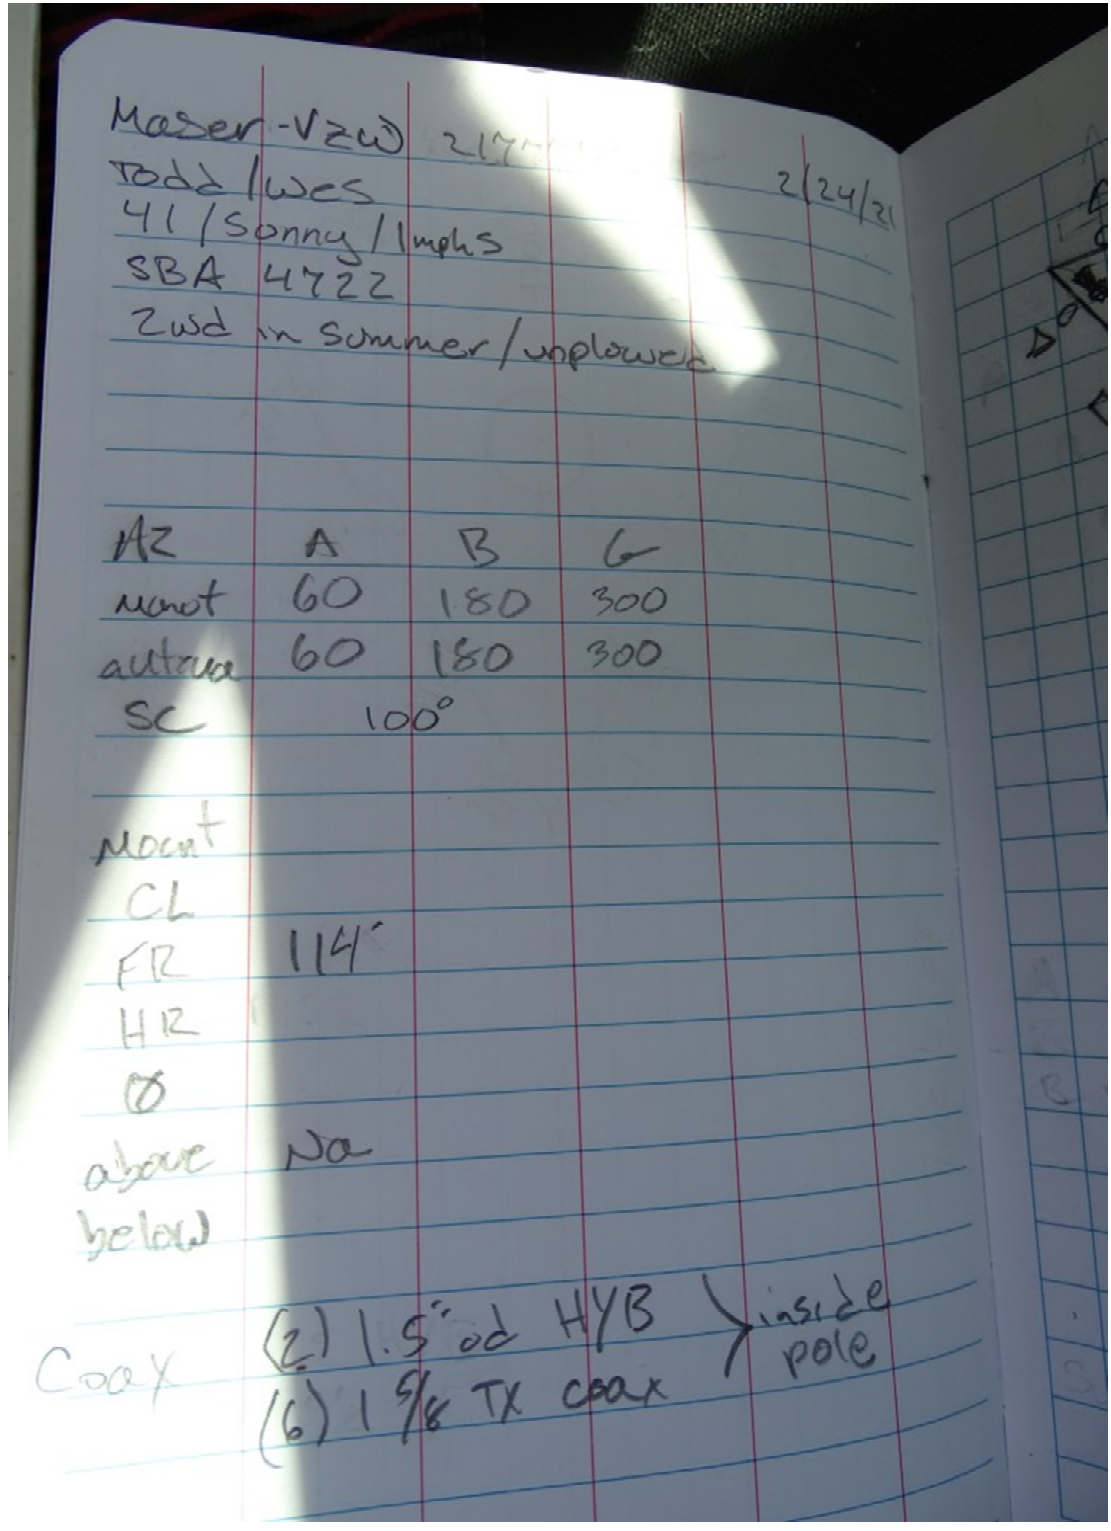 Maser-VZW 217
2/24/21
Todd/Wes
41/Sonny/1mphs
SBA 4722
2wd in summer/unplowed
AZ A B G
Mount 60 180 300
antenna 60 180 300
SC 100°
Mount
CL
FR 114"
HR
Ø
above Na
below
Coax (2) 1.5" od HYB > inside
(6) 1 5/8 TX coax pole